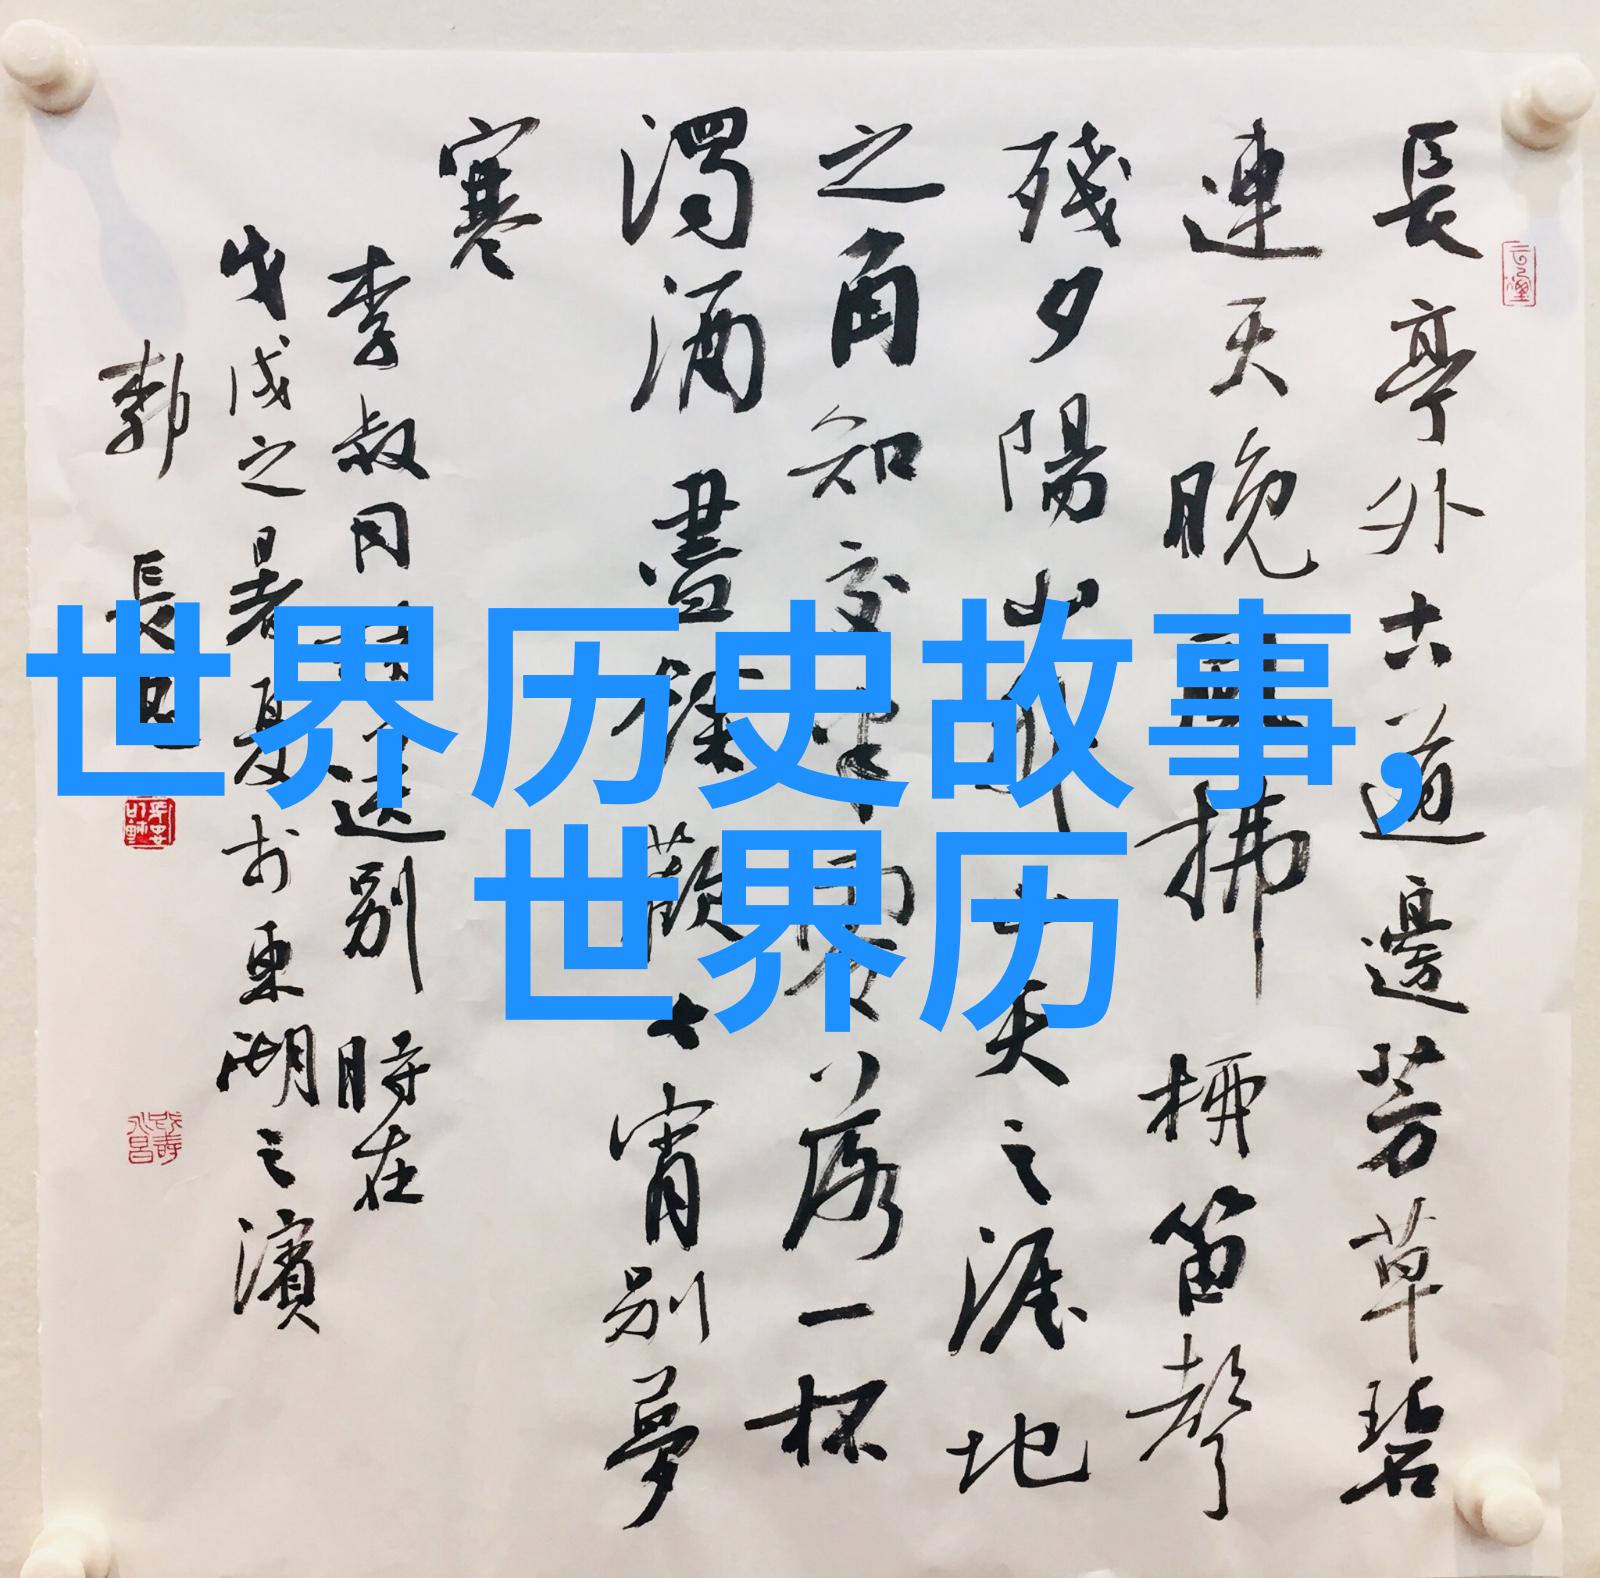 世界历史故事,
世界历
長亭外古道邊芳草碧
連天晚風拂柳笛聲
殘夕陽山外山天之涯地
之角知交半零落一杯
濁酒盡餘歡今宵別夢
寒
李叔同 送別 時在
戊戌之暑夏於東湖之濱